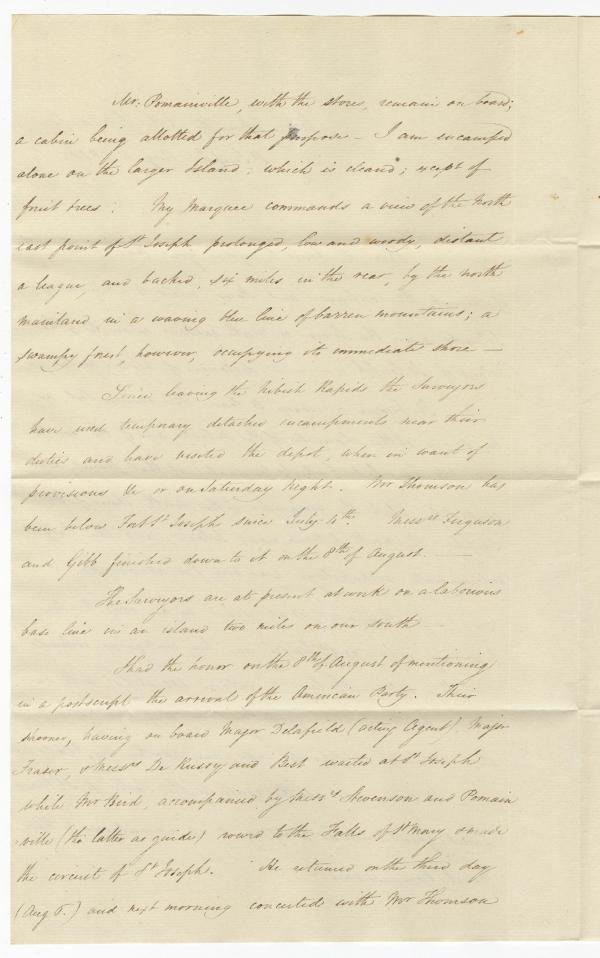 Mr: Pomainville, with the stores, remain on board;
a cabin being allotted for that purpose – I am encamped
alone on the larger Island; which is cleard; except of
fruit trees: My Marquee commands a view of the North
east point of St Joseph prolonged, low and woody, distant
a league, and backed, six miles in the rear, by the north
mainland in a waving blue line of barren mountains; a
swampy forest, however, occupying its immediate shore –
Since leaving the Nibish Rapids the Surveyors
have used temporary detached encampments near their
duties and have visited the depot, when in want of
provisions &c or on Saturday Night. Mr Thomson has
been below Fort St Joseph since July 4th. Messrs Ferguson
and Gibb finished down to it on the 8th of August. –
The Surveyors are at present at work on a laborious
base line in an island two miles on our south –
I had the honor on the 8th of August of mentioning
in a postscript the arrival of the American Party. Their
shooner, having on board Major Delafield (acting Agent), Major
Fraser, & Messrs De Russy and Best waited at St Joseph
while Mr Bird, accompanied by Messrs Stevenson and Pomain
ville (the latter as guide) rowed to the Falls of St Mary & made
the circuit of St Joseph. He returned on the third day
(Aug 6.) and next morning concerted with Mr Thomson